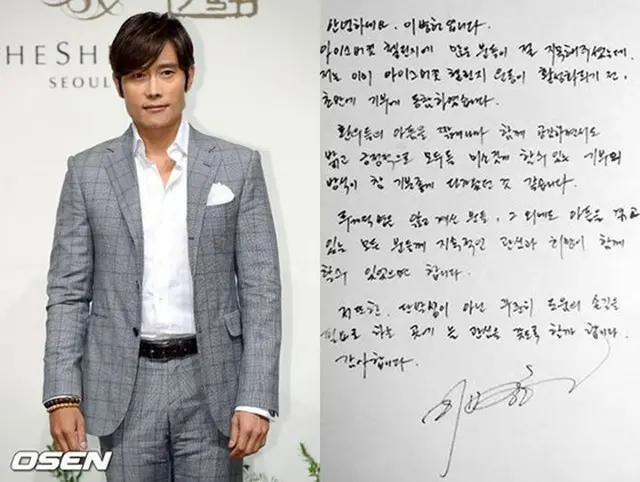 HESHE
SEOUL
OSEN
안녕하세요. 이병헌입니다.
아이스버킷 챌린지에 많은 분들이 절 지목해주셨는데,
저는 이미 아이스버킷 챌린지 운동이 활성화되기 전,
초반에 기부에 동참하였습니다.
환우들의 아픔을 짧게나마 함께 공감하면서도
밝고 긍정적으로 모두들 미소짓게 할 수 있는 기부의
방식이 참 기분좋게 다가왔던 것 같습니다.
루게릭병을 앓고 계신 분들, 그 외에도 아픔을 갖고
있는 모든 분들께 지속적인 관심과 희망이 함께
할 수 있었으면 합니다.
저 또한, 단발성이 아닌 꾸준히 도움의 손길을
필요로 하는 곳에 늘 관심을 갖도록 할까 합니다.
감사합니다.